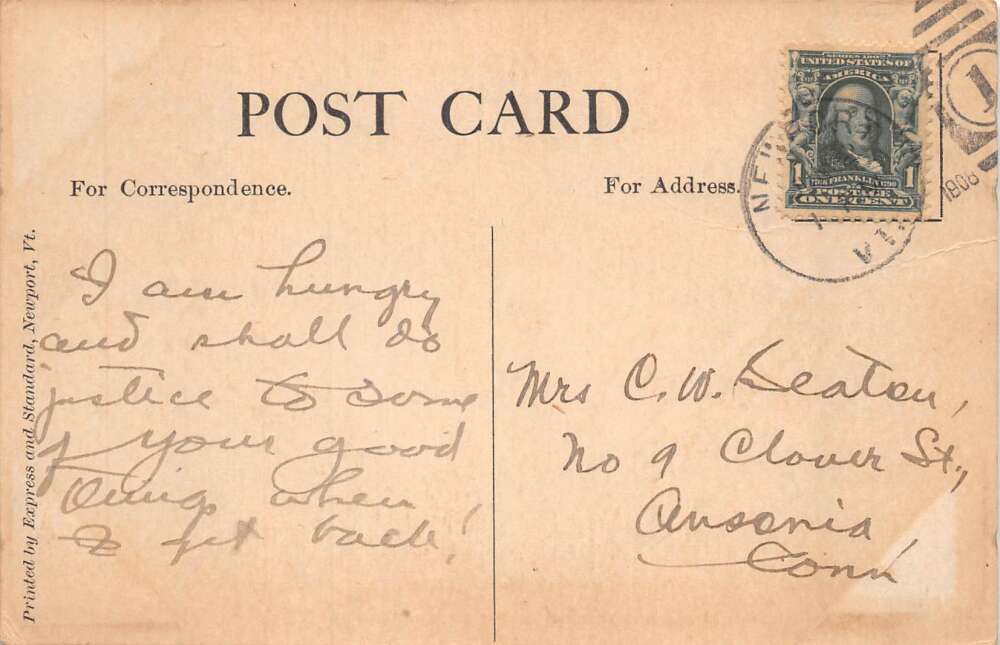 POST CARD
For Correspondence.
For Address.
SERIES 1902
UNITED STATES OF
AMERICA
1 FRANKLIN 1790 1
POSTAGE
ONE CENT
1
1908
Printed by Express and Standard, Newport, Vt.
I am hungry
and shall do
justice to some
of your good
things when
I get back!
Mrs C. W. Seaton,
No 9 Clover St.,
Ansonia
Conn